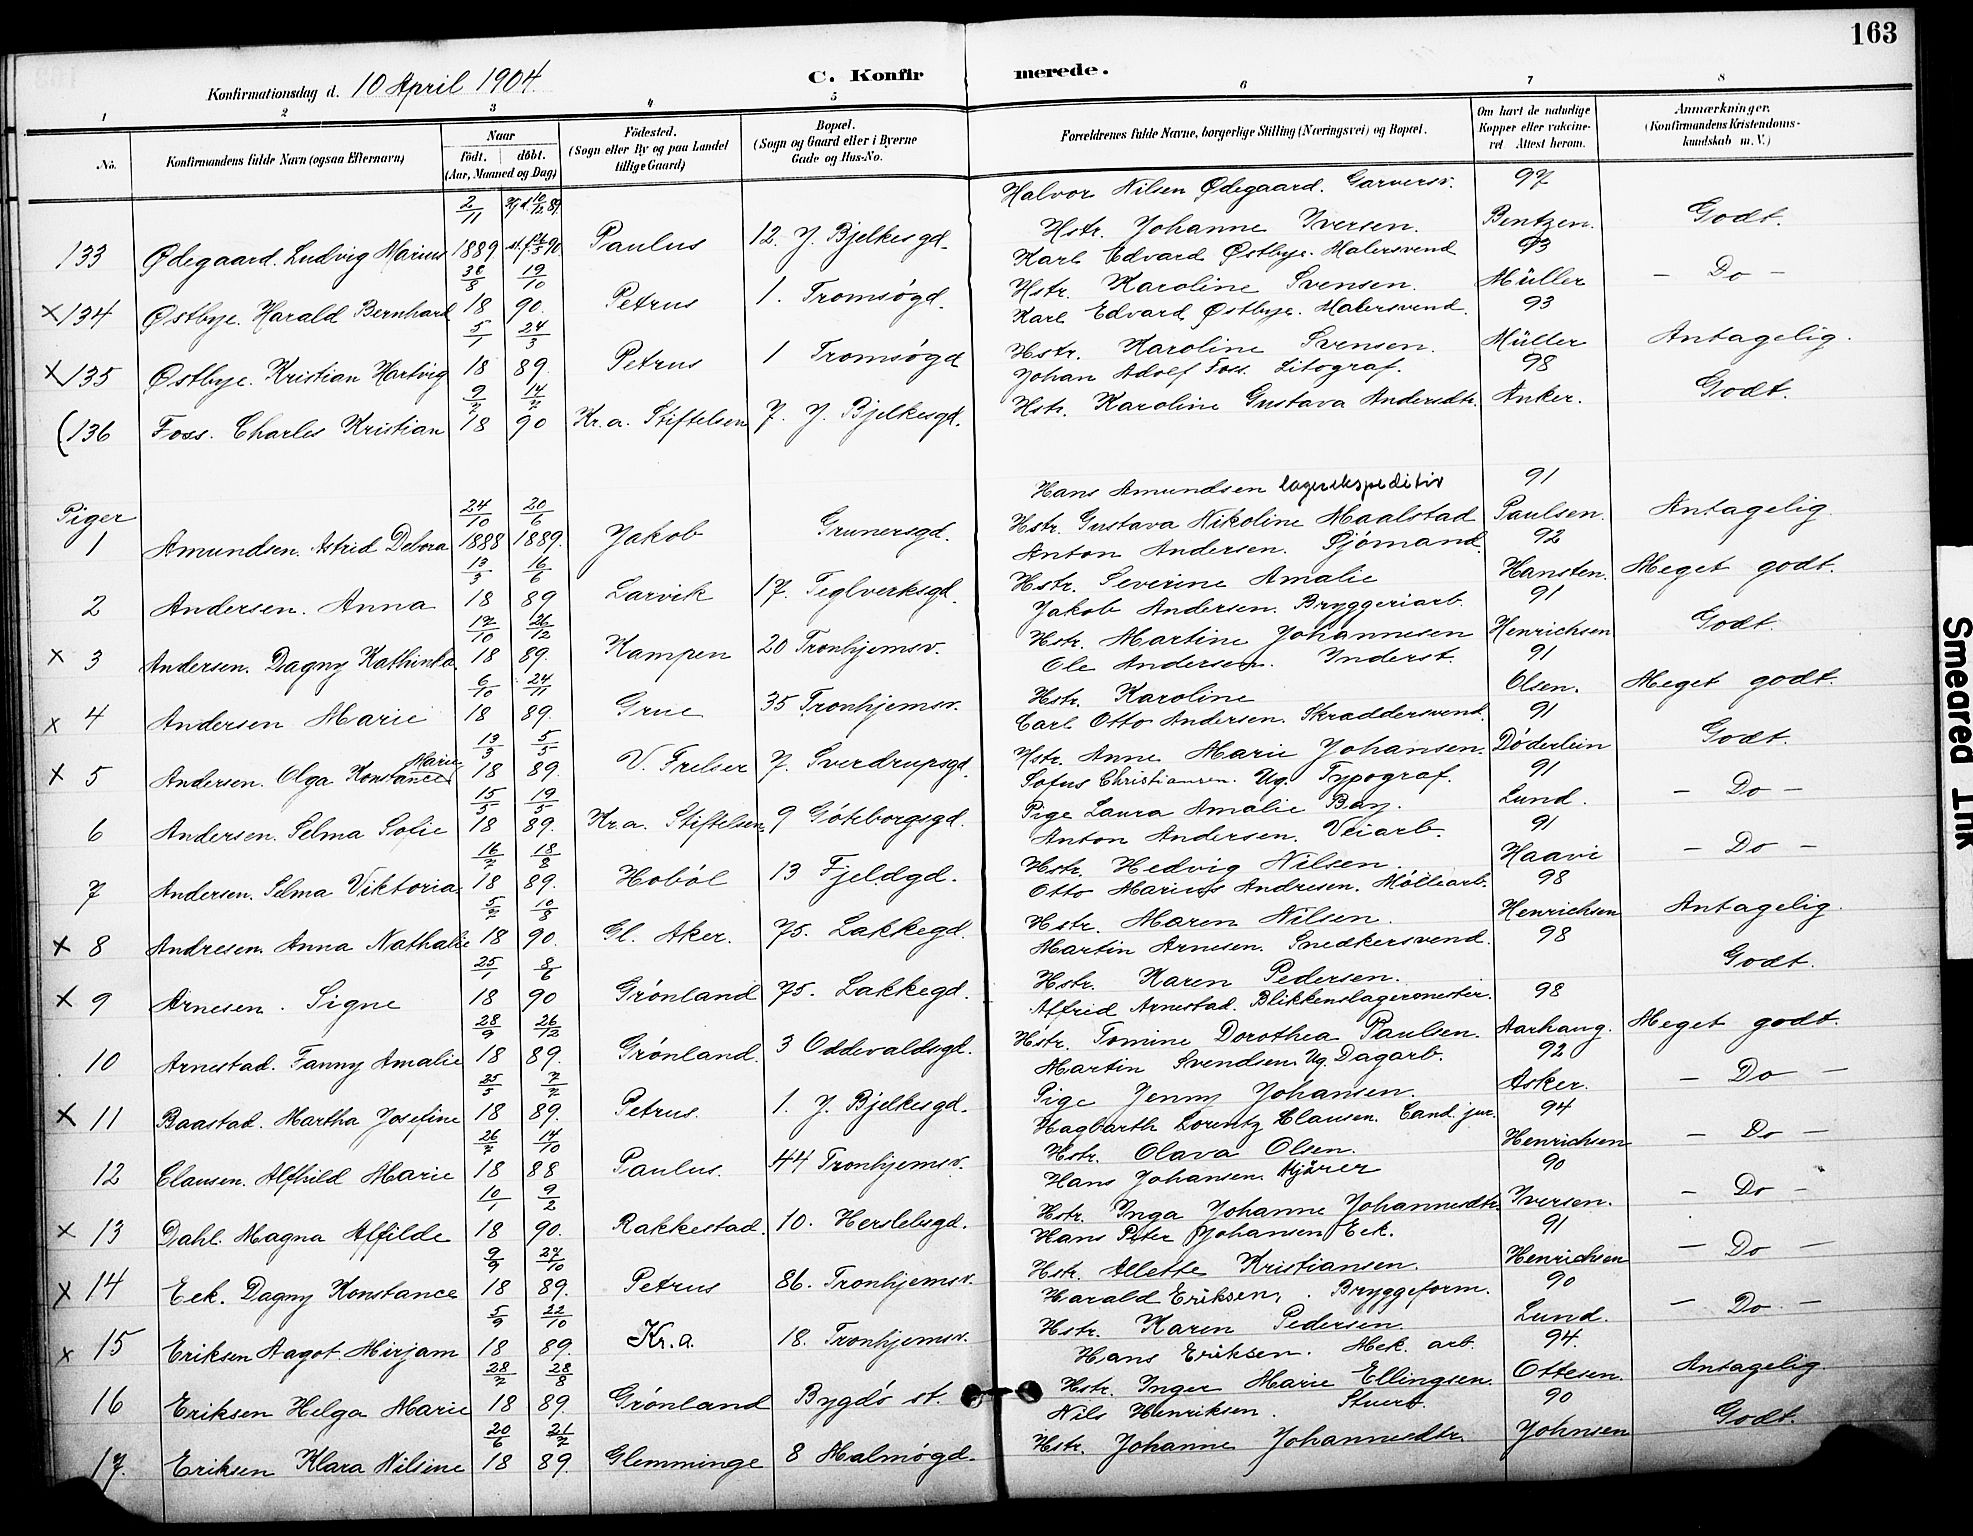 163
C. Konfirmerede.
Konfirmationsdag d. 10 April 1904.
1 2 3 4 5 6 7 8
No. Konfirmandens fulde Navn (ogsaa Efternavn) Naar født. døbt. (Aar, Maaned og Dag) Fødested. (Sogn eller By og paa Landet tillige Gaard) Bopæl. (Sogn og Gaard eller i Byerne Gade og Hus-No. Forældrenes fulde Navne, borgerlige Stilling (Næringsvei) og Bopæl. Om havt de naturlige Kopper eller vaccineret. Attest herom. Anmærkninger. (Konfirmandens Kristendomskundskab m. V.)
2/11 Halvor Nilsen Ødegaard. Garversv. 97
133 Ødegaard. Ludvig Marius 1889 Paulus 12. J. Bjelkesgd. Hstr. Johanne Iversen. Bentzen. Godt.
19/10 Karl Edvard Østbye. Malersvend 93
x 134 Østbye. Harald Bernhard 18 90. Petrus 1. Tromsøgd. Hstr. Karoline Svensen. Müller – Do –
5/1 24/3 Karl Edvard Østbye. Malersvend. 93
x 135 Østbye. Kristian Hartvig 18 89. Petrus 1 Tromsøgd Hstr. Karoline Svensen. Müller Antagelig.
9/2 14/7 Johan Adolf Foss. Litograf. 98
(136 Foss. Charles Kristian 18 90 Kr.a. Stiftelsen 7. J. Bjelkesgd. Hstr. Karoline Gustava Andersdtr. Anker. Godt.
Piger 24/10 20/6 Hans Amundsen lagerekspeditør 91
1 Amundsen. Astrid Debora 1888 1889. Jakob Grunersgd. Hstr. Gustava Nikoline Maalstad Paulsen. Antagelig
13/3 16/6 Anton Andersen. Sjømand. 92
2 Andersen. Anna 18 89 Larvik 17. Teglverksgd. Hstr. Severine Amalie Hansten. Meget godt.
17/10 26/12 Jakob Andersen. Bryggeriarb. 91
x 3 Andersen. Dagny Kathinka 18 89. Kampen 20 Tronhjemsv. Hstr. Martine Johannesen Henrichsen Godt.
6/10 24/11 Ole Andersen. Inderst. 91
x 4 Andersen Marie 18 89. Grue 35 Tronhjemsv. Hstr. Karoline Olsen. Meget godt.
13/3 5/5 Carl Otto Andersen. Skræddersvend. 91
x 5 Andersen. Olga Konstance Marie 18 89. V. Frelser 7. Sverdrupsgd. Hstr. Anne Marie Johansen. Døderlein Godt.
15/5 19/5 Sofus Christiansen. Ug. Typograf. 91
6 Andersen. Selma Sofie 18 89. Kr.a. Stiftelsen. 9 Göteborgsgd. Pige Laura Amalie Bay. Lund. – Do –
16/7 18/8 Anton Andersen. Veiarb. 91
7 Andersen. Selma Viktoria 18 89. Hobøl 13 Fjeldgd. Hstr. Hedvig Nilsen. Haavi – Do –
10/8 Otto Marius Andresen. Møllearb. 98
x 8 Andresen. Anna Nathalie 18 90. Gl. Aker. 75. Lakkegd. Hstr. Maren Nilsen. Henrichsen Antagelig.
25/1 8/6 Martin Arnesen. Snedkersvend. 98
x 9 Arnesen. Signe 18 90 Grønland 75. Lakkegd. Hstr. Karen Pedersen. Godt.
28/9 26/12 Alfred Arnestad. Blikkenslagermester. 98
10 Arnestad. Fanny Amalie 18 89. Grønland. 3 Oddevaldsgd. Hstr. Tomine Dorothea Paulsen. Aarhaug. Meget godt.
25/5 7/7 Martin Svendsen. Ug. Dagarb. 92
x 11 Baastad. Martha Josefine 18 89. Petrus. 1. J. Bjelkesgd. Pige Jenny Johansen. Asker. – Do –
26/7 14/10 Hagbarth Lorentz Clausen. Cand. jur. 94
12 Clausen. Alfhild Marie 18 88 Paulus. 44 Tronhjemsv. Hstr. Olava Olsen. Henrichsen – Do –
10/1 9/2 Hans Johansen. Kjører 90
x 13 Dahl. Magna Alfilde 18 90. Rakkestad. 10. Herslebsgd. Hstr. Inga Johanne Johannesdtr. Iversen. – Do –
9/9 27/10 Hans Peter Johansen Eek. 91
x 14 Eek. Dagny Konstance 18 89. Petrus 86. Tronhjemsv. Hstr. Allette Kristiansen. Henrichsen – Do –
5/9 22/10 Harald Eriksen. Bryggeform. 90
x 15 Eriksen Aagot. Mirjam 18 89. Kr.a. 18. Tronhjemsv. Hstr. Karen Pedersen. Lund. – Do –
28/7 28/8 Hans Eriksen. Mek. arb. 94.
16 Eriksen Helga Marie 18 89. Grønland Bygdö st. Hstr. Inger Marie Ellingsen. Ottesen. Antagelig.
20/6 21/7 Nils Henriksen. Stuert. 90
17. Eriksen Klara Nilsine 18 89. Glemminge 8 Malmøgd. Hstr. Johanne Johannesdtr. Johnsen Godt.
Smeared Ink